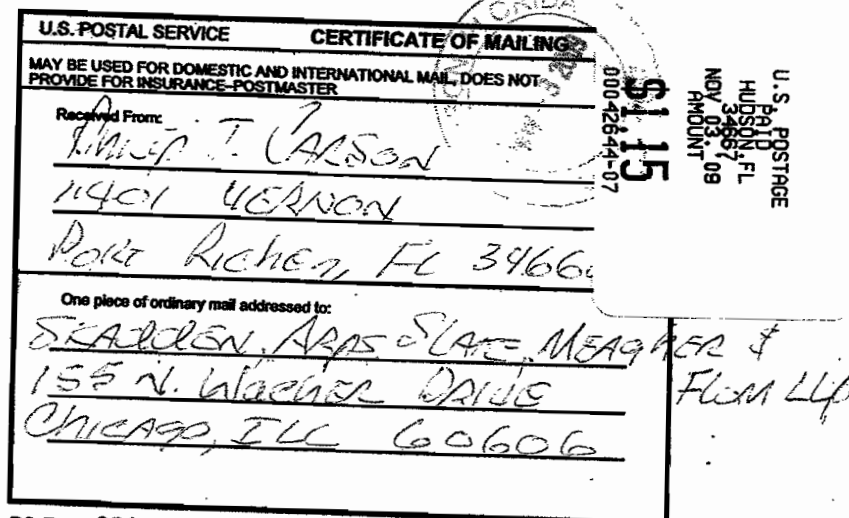 U.S. POSTAL SERVICE CERTIFICATE OF MAILING
MAY BE USED FOR DOMESTIC AND INTERNATIONAL MAIL, DOES NOT
PROVIDE FOR INSURANCE-POSTMASTER
Received From:
Philip T. Carson
11401 VERNON
Port Richey, FL 3466
One piece of ordinary mail addressed to:
SKADDEN, ARPS SLATE, MEAGHER &
FLOM LLP
155 N. WACKER DRIVE
CHICAGO, ILL 60606
U.S. POSTAGE
PAID
HUDSON, FL
34667
NOV 03, 09
AMOUNT
$1.15
00042644-07